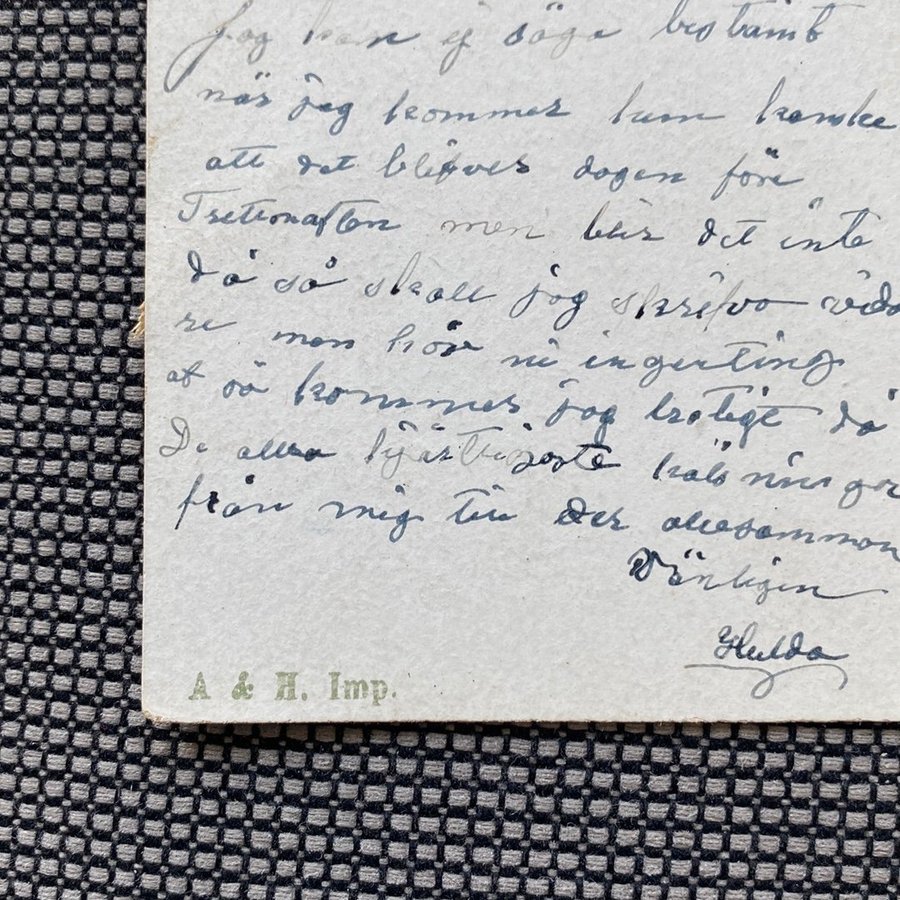 Jag kan ej säga bestämt
när jag kommer kan kanske
att det blifver dagen före
Trettonafton men blir det inte
då så skall jag skrifva vida
re men hör ni ingenting
af så kommer jag
De allra hjärtligaste hälsningar
från mig till Der allesamman
Vänligen
Hulda
A & H. Imp.